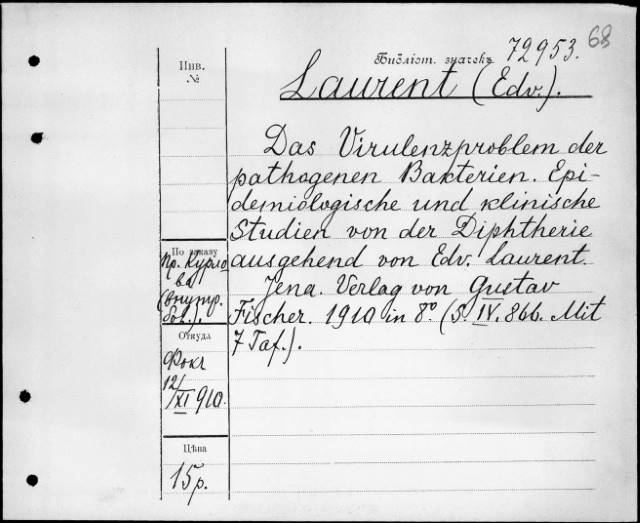 68
Библіот. значекъ 72953.
Инв.
№
Laurent (Edv.).
Das Virulenzproblem der
pathogenen Bakterien. Epi-
demiologische und klinische
Studien von der Diphtherie
ausgehend von Edv. Laurent.
Jena. Verlag von Gustav
Fischer. 1910 in 8º (S. IV. 866. Mit
7 Taf.).
По заказу
пр. Курло
ва
(внутр.
бол.).
Откуда
Фокк
12/XI 910.
Цѣна
15р.